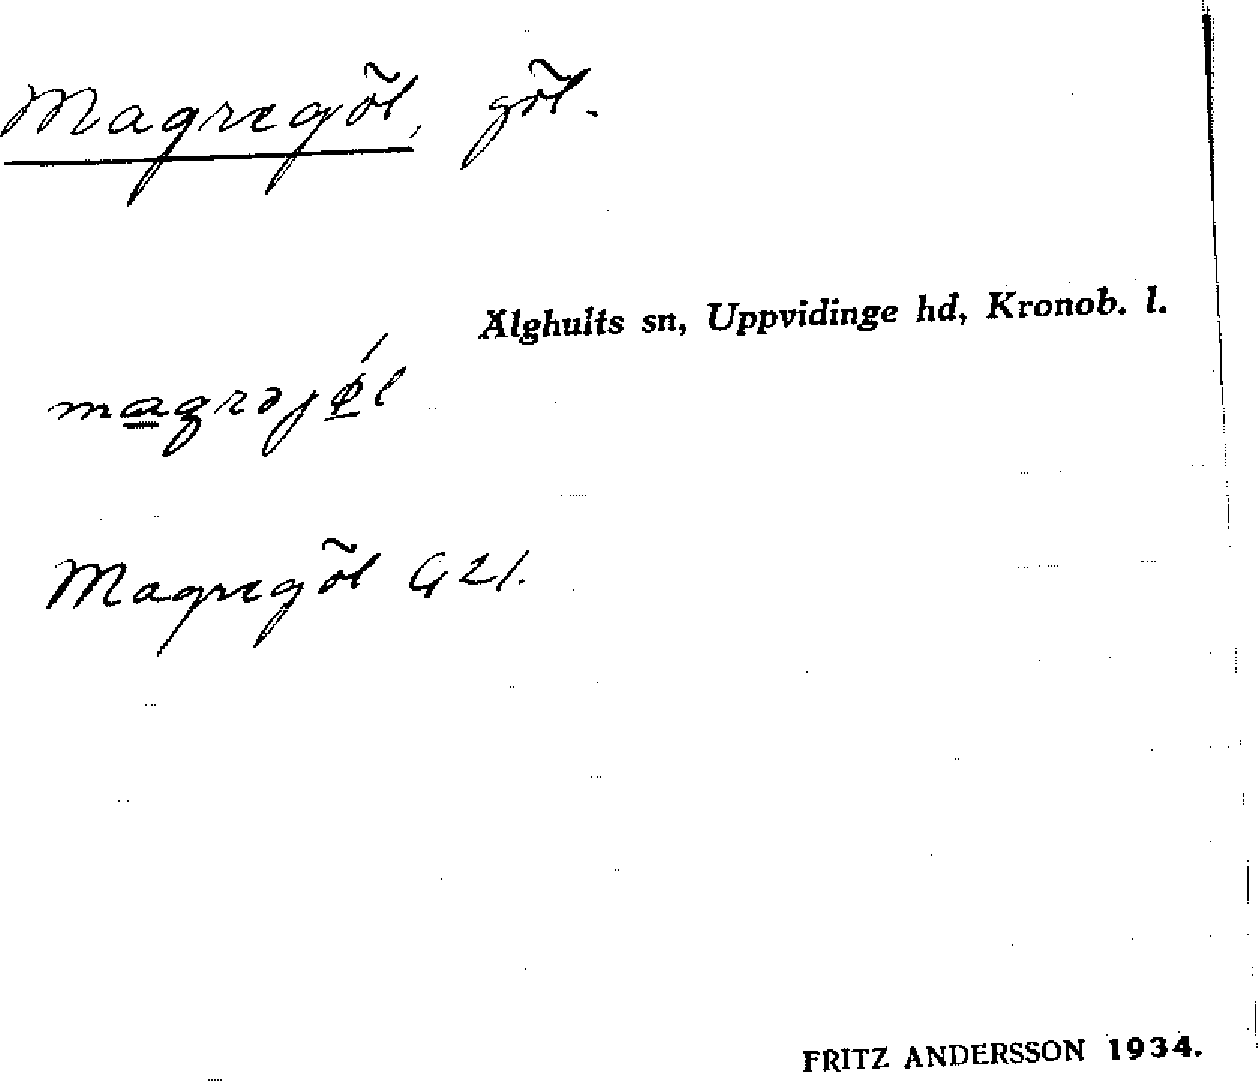 Magregöl, göl.
Älghults sn, Uppvidinge hd, Kronob. l.
magrəjǿ̲l
Magregöl G 21.
FRITZ ANDERSSON 1934.